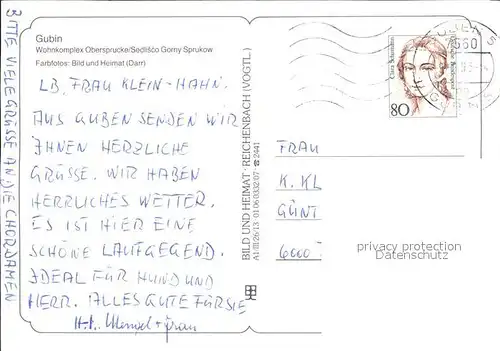 Gubin
Wohnkomplex Obersprucke/Sedlišćo Gorny Sprukow
Farbfotos: Bild und Heimat (Darr)
LB. FRAU KLEIN-HAHN.
AUS GUBEN SENDEN WIR
IHNEN HERZLICHE
GRÜSSE. WIR HABEN
HERRLICHES WETTER.
ES IST HIER EINE
SCHÖNE LAUFGEGEND.
IDEAL FÜR HUND UND
HERR. ALLES GUTE FÜR SIE
+ Frau
BITTE VIELE GRÜSSE AN DIE CHORDAMEN
BILD UND HEIMAT · REICHENBACH (VOGTL.)
A1/III/26/13 · 01 06 0332/07 · ☎ 2441
Clara Schumann
80
GUBEN 5
FRAU
K. KL
GÜNT
6000
privacy protection
Datenschutz